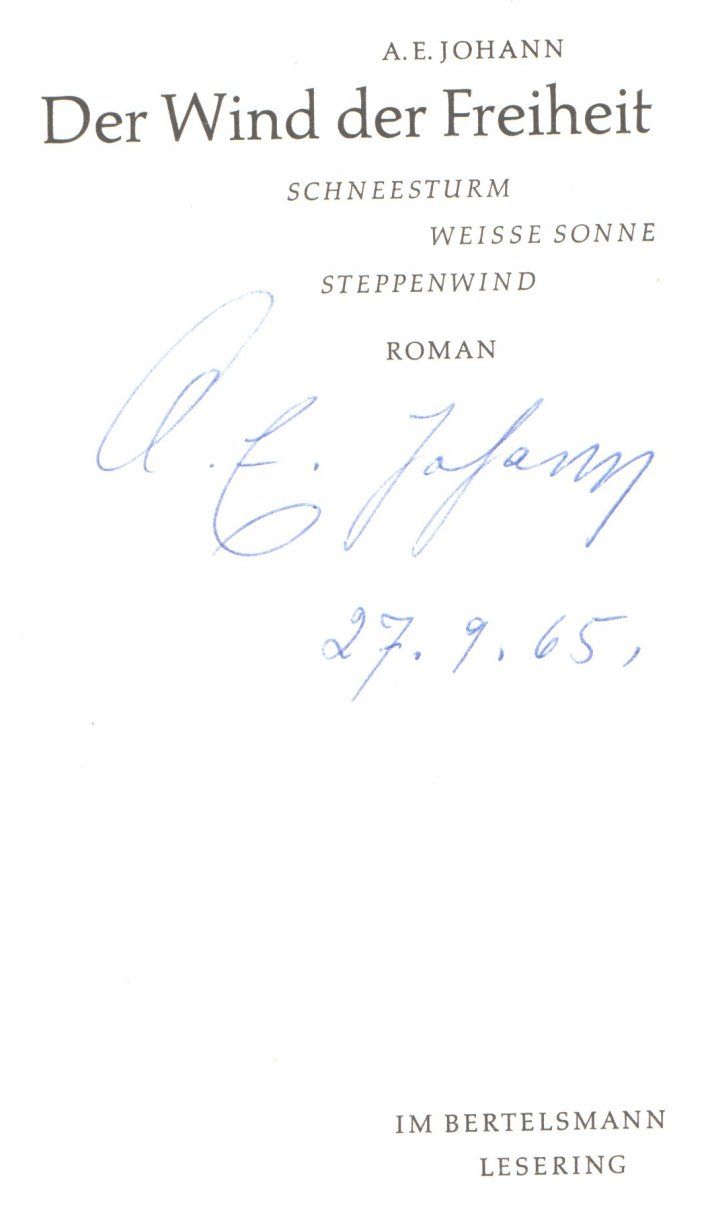 A. E. JOHANN
Der Wind der Freiheit
SCHNEESTURM
WEISSE SONNE
STEPPENWIND
ROMAN
A. E. Johann
27. 9. 65,
IM BERTELSMANN
LESERING